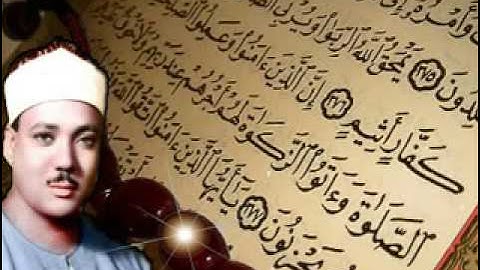 وَأَمْرُهُۥٓ إِلَى
لِدُونَ ٢٧٥ يَمْحَقُ ٱللَّهُ ٱلرِّبَوٰا۟ وَيُرْبِى
كَفَّارٍ أَثِيمٍ ٢٧٦ إِنَّ ٱلَّذِينَ ءَامَنُوا۟ وَعَمِلُوا۟
ٱلصَّلَوٰةَ وَءَاتَوُا۟ ٱلزَّكَوٰةَ لَهُمْ أَجْرُهُمْ عِندَ رَبِّهِمْ وَلَا خَوْفٌ
يَحْزَنُونَ ٢٧٧ يَٰٓأَيُّهَا ٱلَّذِينَ ءَامَنُوا۟ ٱتَّقُوا۟ ٱللَّهَ